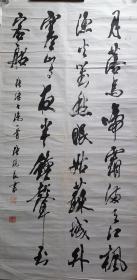 月落烏啼霜滿天江楓
漁火對愁眠姑蘇城外
寒山寺夜半鐘聲到
客船